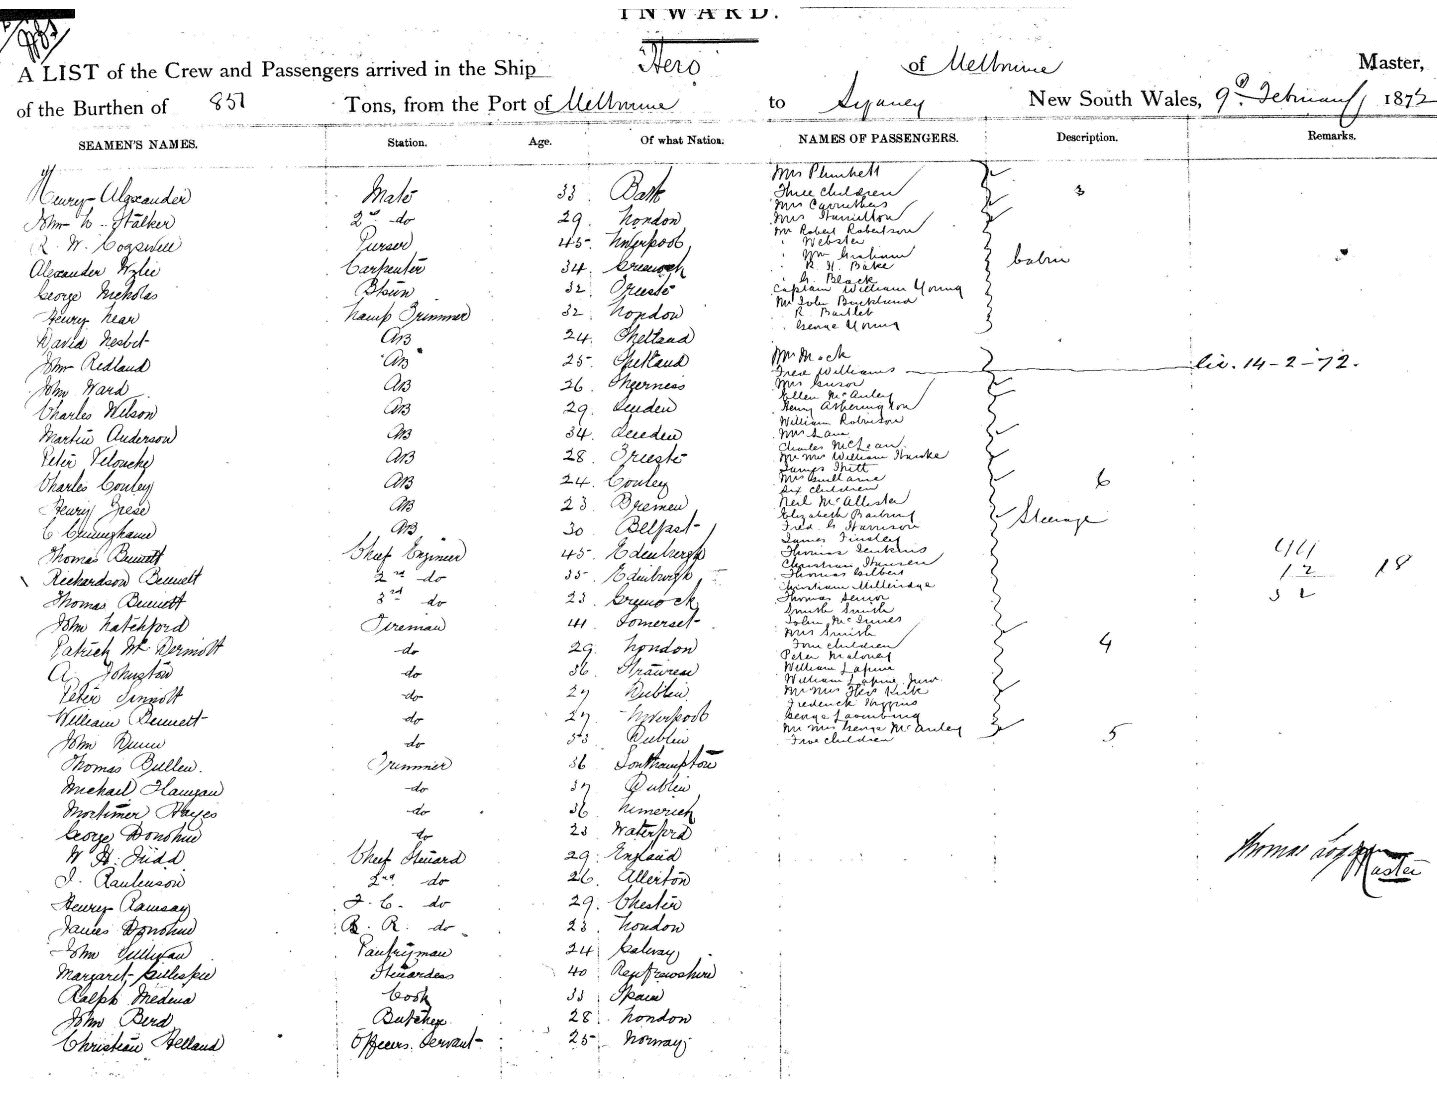 INWARD.
A LIST of the Crew and Passengers arrived in the Ship "Hero" of Melbourne Master,
of the Burthen of 851 Tons, from the Port of Melbourne to Sydney New South Wales, 9th February 1872
SEAMEN'S NAMES. Station. Age. Of what Nation. NAMES OF PASSENGERS. Description. Remarks.
Henry Alexander Mate 33 Bath
John L. Stalker 2nd do 29 London
R. W. Cogswell Purser 45 Liverpool
Alexander Wylie Carpenter 34 Greenock
George Nicholas Bosun 32 Trieste
Henry Lear Lamp Trimmer 32 London
David Nesbet AB 24 Shetland
John Redland AB 25 Shetland
John Ward AB 26 Inverness
Charles Wilson AB 29
Martin Anderson AB 34
Peter AB 28 Trieste
Charles Conley AB 24 Conley
Henry Giese AB 23 Bremen
C Cunningham AB 30 Belfast
Thomas Bennett Chief Engineer 45 Edenburgh
Richardson Bennett 2nd do 35 Edinburgh
Thomas Bennett 3rd do 23 Greenock
John Latchford Fireman 41 Somerset
Patrick McDermott do 29 London
A Johnston do 36
Peter Sinnott do 27 Dublin
William Bennett do 27 Liverpool
John Dunn do 33 Dublin
Thomas Bullen. Trimmer 36 Southampton
Michael Flanigan do 37 Dublin
Mortimer Hayes do 36 Limerick
George Donohue do 23 Waterford
W H. Judd Chief Steward 29 England
J. Rawlinson 2nd do 26 Allerton
Henry Ramsay F. C. do 29 Chester
James Donohue B. R. do 23 London
John Sullivan Pantryman 24 Galway
Margaret Gillespie Stewardess 40 Renfrewshire
Ralph Medina Cook 33 Spain
John Bird Butcher 28 London
Christian Helland Officers Servant 25 Norway
Mrs Plunkett
Three children 3
Mrs Carruthers
Mrs Hamilton
Mr Robert Robertson
" Webster
" Wm Graham Cabin
" R. H. Bake
" G. Black
Captain William Young
Mr John Buckland
" R Bartlet
" George Young
Mr Mock
Fred Williams liv. 14-2-72.
Mrs
Ellen McAuley
Henry Atherington
William Robinson
Mrs
Charles McLean
Mr Mrs William
James
Mrs Williams
Six children 6
Neil McAllister
Elizabeth
Fred G Harrison Steerage
James Tinsley
Thomas Jenkins
Christian Hansen
Thomas Gilbert
Christian
Thomas Senior
Smith Smith
John McInnes
Mrs Smith
Four children 4
Peter Maloney
William Lapine
William Lapine Junr
Mr Mrs Kirk
Frederick Higgins
George
Mr Mrs George McAuley
Five children 5
44
12 18
32
Thomas Logan
Master